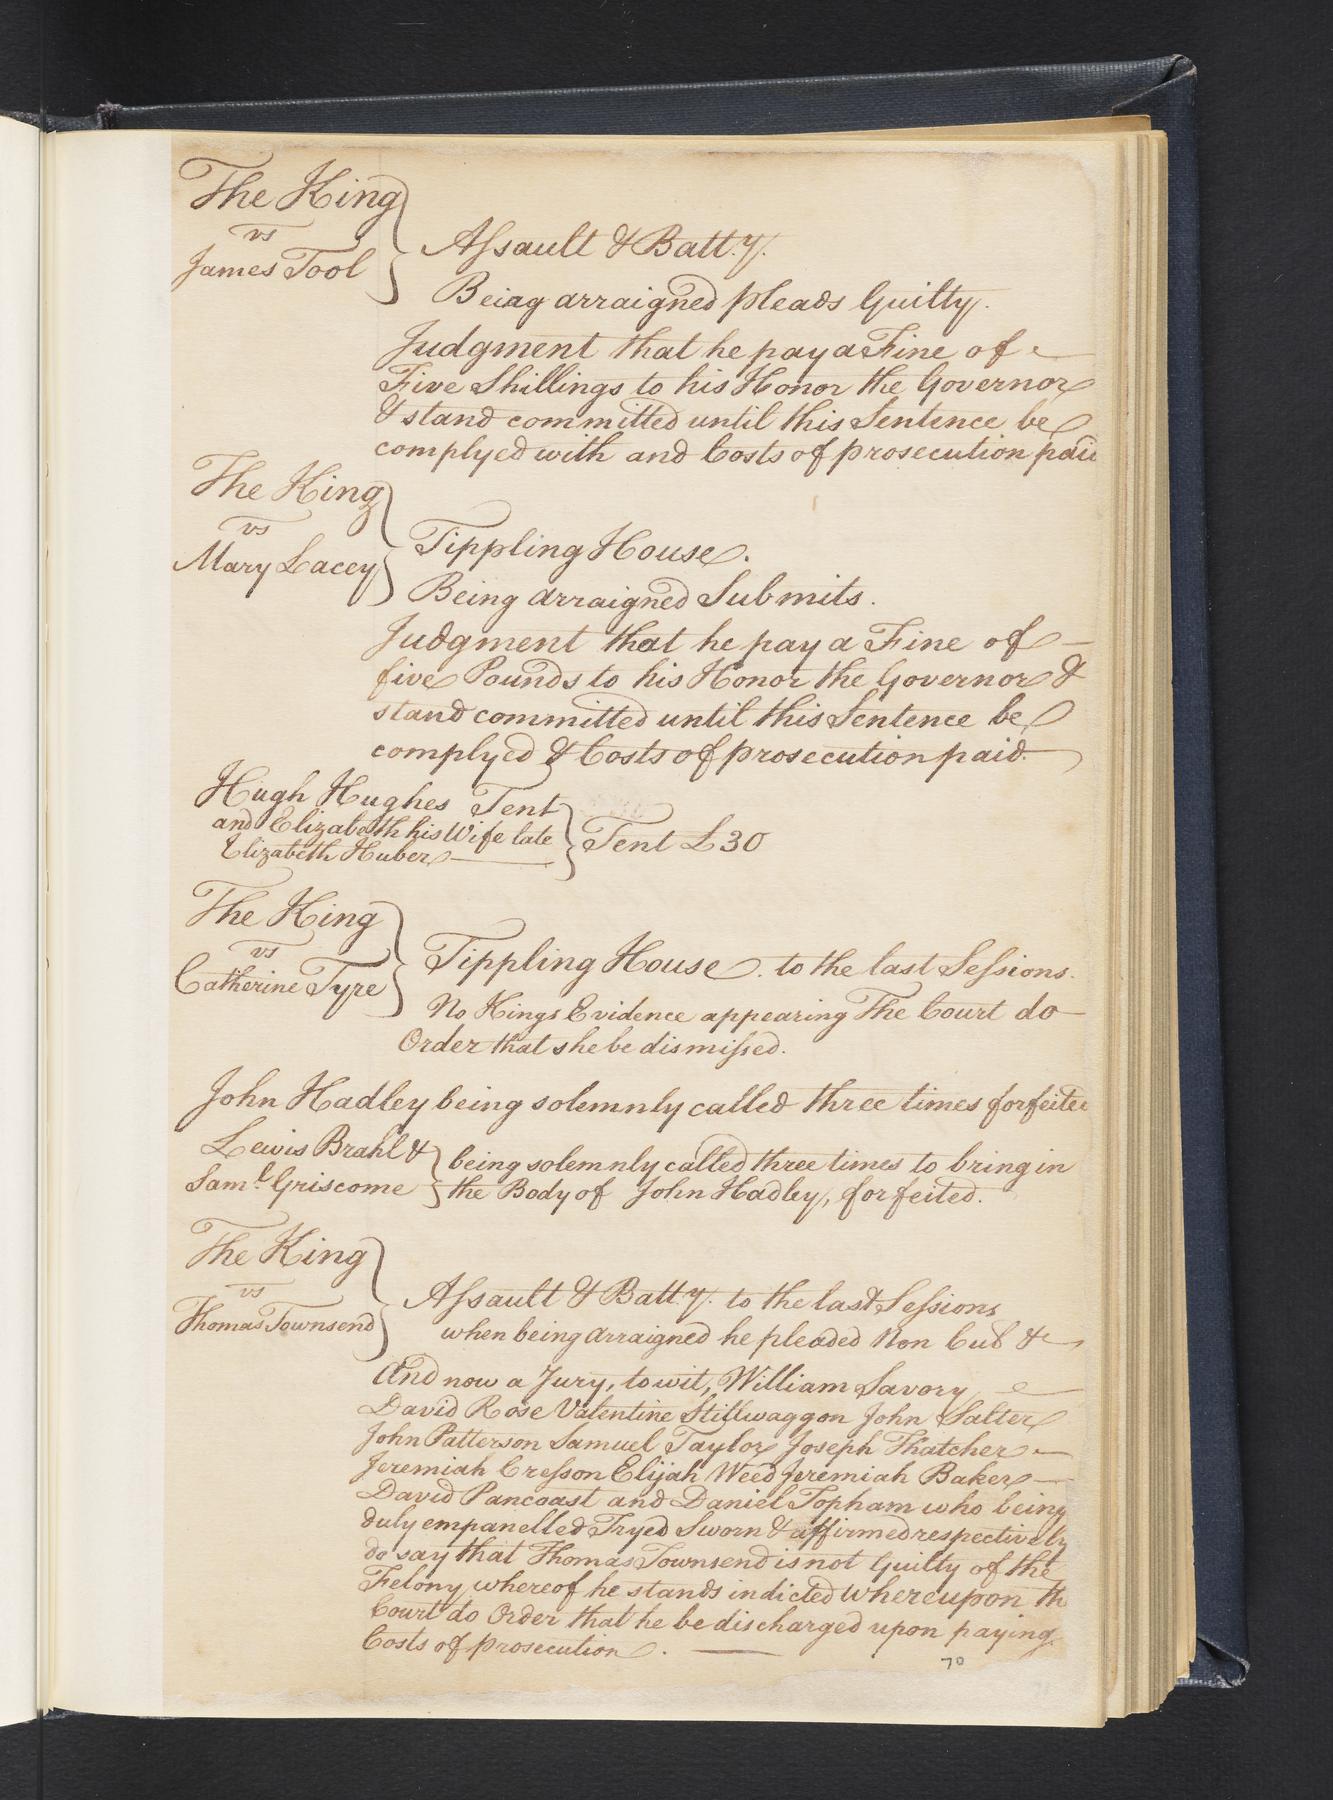 The King
vs
James Tool
Assault & Batt.y.
Being arraigned pleads Guilty.
Judgment that he pay a Fine of
Five Shillings to his Honor the Governor
& stand committed until this Sentence be
complyed with and Costs of prosecution paid
The King
vs
Mary Lacey
Tippling House.
Being arraigned Submits.
Judgment that he pay a Fine of
five Pounds to his Honor the Governor &
stand committed until this Sentence be
complyed & Costs of prosecution paid.
Hugh Hughes Tent
and Elizabeth his Wife late
Elizabeth Huber
Tent £30
The King
vs
Catherine Tyre
Tippling House. to the last Sessions.
No Kings Evidence appearing The Court do
Order that she be dismissed.
John Hadley being solemnly called three times forfeited
Lewis Brahl &
Saml. Griscome
being solemnly called three times to bring in
the Body of John Hadley, forfeited.
The King
vs
Thomas Townsend
Assault & Batt.y. to the last Sessions
when being arraigned he pleaded Non Cul &c
And now a Jury, to wit, William Savory
David Rose Valentine Stillwaggon John Salter
John Patterson Samuel Taylor Joseph Thatcher
Jeremiah Cresson Elijah Weed Jeremiah Baker
David Pancoast and Daniel Topham who being
duly empanelled Tryed Sworn & affirmed respectively
do say that Thomas Townsend is not Guilty of the
Felony whereof he stands indicted whereupon th
Court do Order that he be discharged upon paying
Costs of prosecution.
70